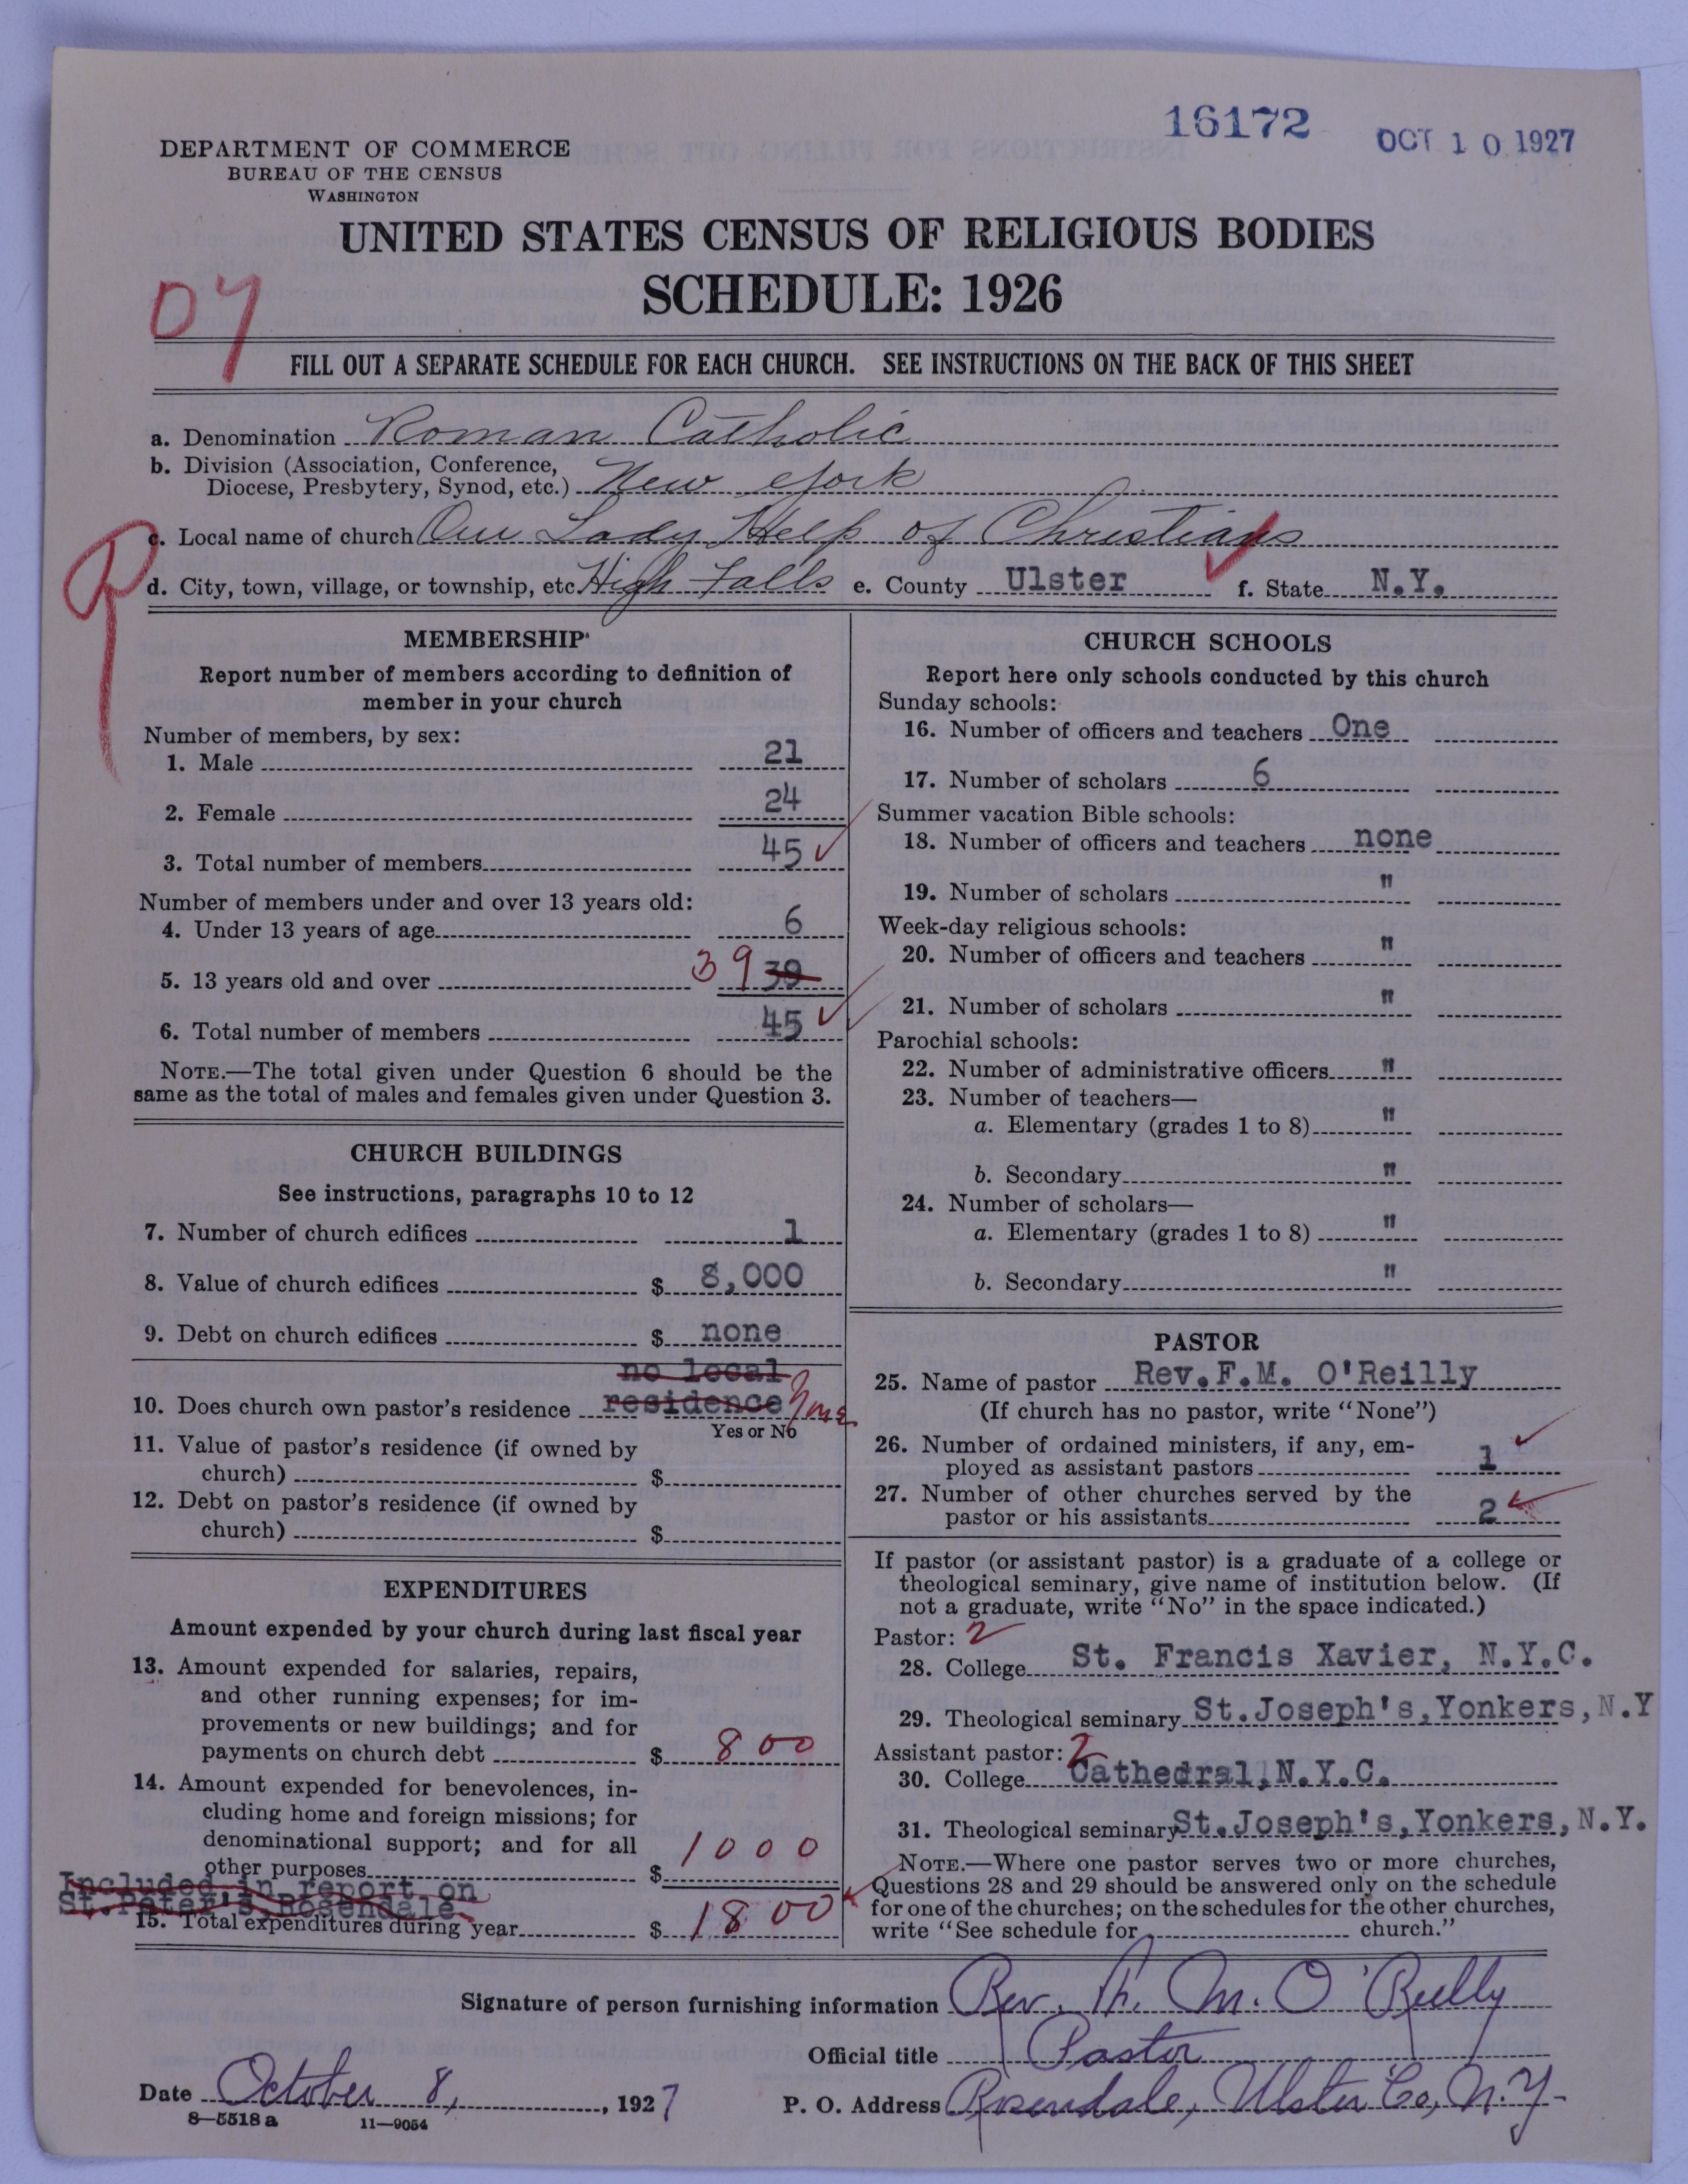 16172
OCT 10 1927
DEPARTMENT OF COMMERCE
BUREAU OF THE CENSUS
WASHINGTON
UNITED STATES CENSUS OF RELIGIOUS BODIES
SCHEDULE: 1926
FILL OUT A SEPARATE SCHEDULE FOR EACH CHURCH. SEE INSTRUCTIONS ON THE BACK OF THIS SHEET
a. Denomination Roman Catholic
b. Division (Association, Conference,
Diocese, Presbytery, Synod, etc.) New York
c. Local name of church Our Lady Help of Christians
d. City, town, village, or township, etc. High Falls e. County Ulster f. State N.Y.
MEMBERSHIP
Report number of members according to definition of
member in your church
Number of members, by sex:
1. Male 21
2. Female 24
3. Total number of members 45
Number of members under and over 13 years old:
4. Under 13 years of age 6
5. 13 years old and over 39
6. Total number of members 45
NOTE.—The total given under Question 6 should be the
same as the total of males and females given under Question 3.
CHURCH BUILDINGS
See instructions, paragraphs 10 to 12
7. Number of church edifices 1
8. Value of church edifices $ 8,000
9. Debt on church edifices $ none
no local
10. Does church own pastor's residence residence None
Yes or No
11. Value of pastor's residence (if owned by
church) $
12. Debt on pastor's residence (if owned by
church) $
EXPENDITURES
Amount expended by your church during last fiscal year
13. Amount expended for salaries, repairs,
and other running expenses; for im-
provements or new buildings; and for
payments on church debt $ 800
14. Amount expended for benevolences, in-
cluding home and foreign missions; for
denominational support; and for all
other purposes $ 1000
Included in report on
St. Peter's, Rosendale.
15. Total expenditures during year $ 1800
CHURCH SCHOOLS
Report here only schools conducted by this church
Sunday schools:
16. Number of officers and teachers One
17. Number of scholars 6
Summer vacation Bible schools:
18. Number of officers and teachers none
19. Number of scholars "
Week-day religious schools:
20. Number of officers and teachers "
21. Number of scholars "
Parochial schools:
22. Number of administrative officers "
23. Number of teachers—
a. Elementary (grades 1 to 8) "
b. Secondary "
24. Number of scholars—
a. Elementary (grades 1 to 8) "
b. Secondary "
PASTOR
25. Name of pastor Rev.F.M. O'Reilly
(If church has no pastor, write "None")
26. Number of ordained ministers, if any, em-
ployed as assistant pastors 1
27. Number of other churches served by the
pastor or his assistants 2
If pastor (or assistant pastor) is a graduate of a college or
theological seminary, give name of institution below. (If
not a graduate, write "No" in the space indicated.)
Pastor: 2
28. College St. Francis Xavier, N.Y.C.
29. Theological seminary St.Joseph's,Yonkers,N.Y
Assistant pastor: 2
30. College Cathedral,N.Y.C.
31. Theological seminary St.Joseph's,Yonkers,N.Y.
NOTE.—Where one pastor serves two or more churches,
Questions 28 and 29 should be answered only on the schedule
for one of the churches; on the schedules for the other churches,
write "See schedule for church."
Signature of person furnishing information Rev. F. M. O'Reilly
Official title Pastor
Date October 8, 1927 P. O. Address Rosendale, Ulster Co, N.Y.
8—5518a 11—9054